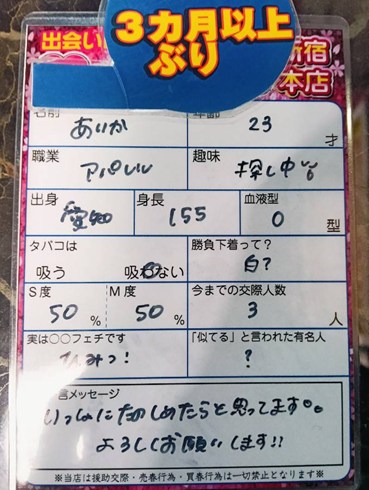 出会い
3カ月以上
ぶり
新宿
本店
名前 あいか 年齢 23 才
職業 アパレル 趣味 探し中
出身 愛知 身長 155 血液型 O 型
タバコは 吸う 吸わない
勝負下着って? 白?
S度 50 % M度 50 %
今までの交際人数 3 人
実は○○フェチです ひみつ!
「似てる」と言われた有名人 ?
言メッセージ
いっしょにたのしめたらと思ってます。
よろしくお願いします!!
※当店は援助交際・売春行為・買春行為は一切禁止となります※